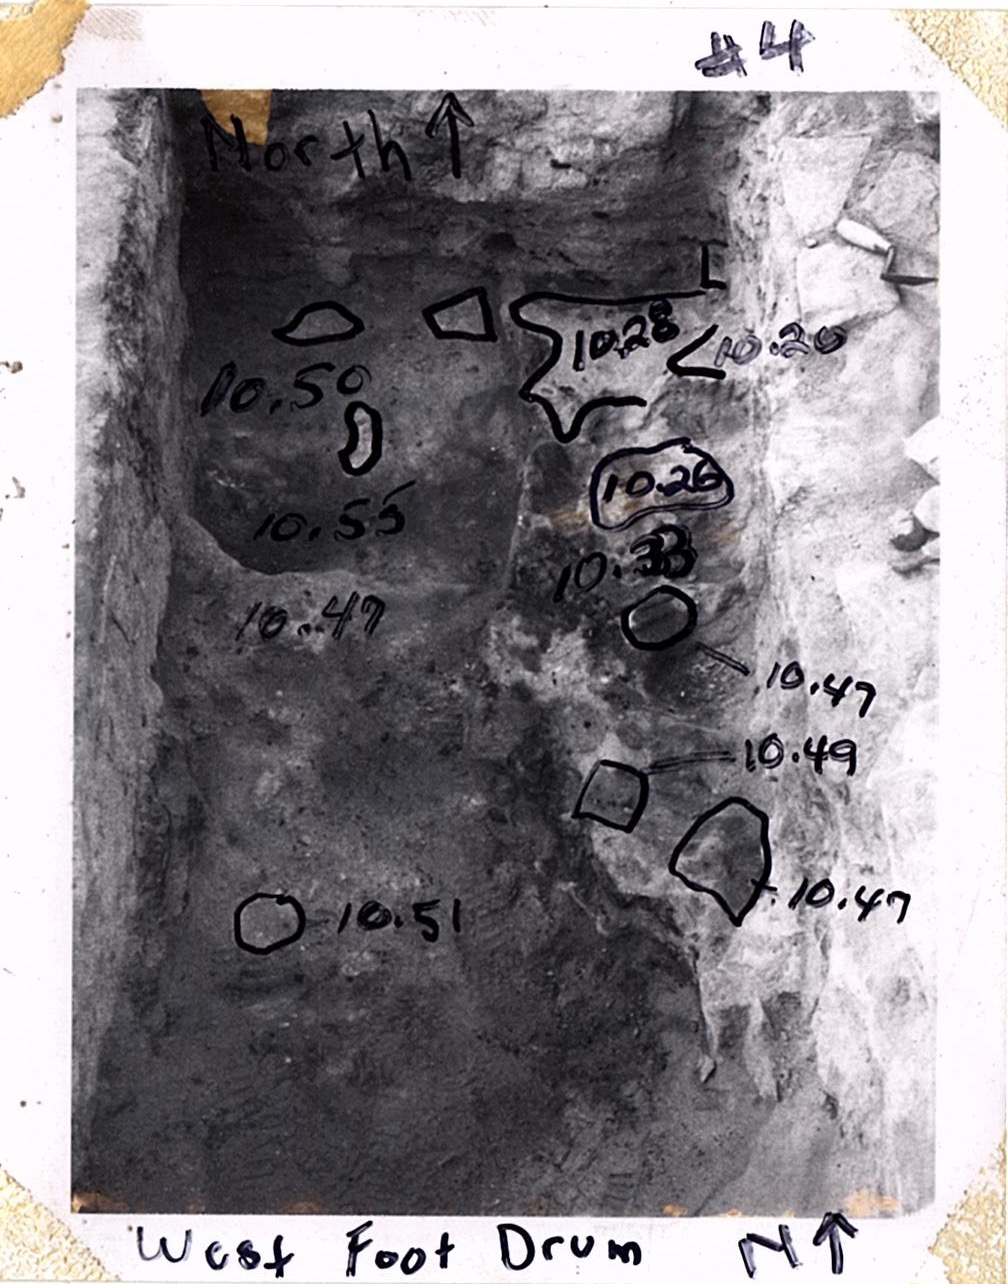 #4
North ↑
L
10.28
10.20
10.50
10.26
10.55
10.33
10.47
10.47
10.49
10.47
10.51
West Foot Drum N↑